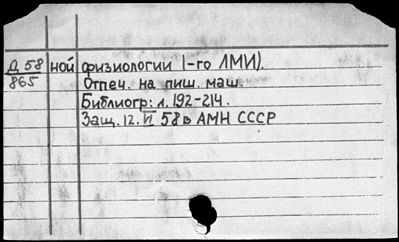 Д 58 ной физиологии I-го ЛМИ).
865 Отпеч. на пиш. маш.
Библиогр: л. 192-214.
Защ. 12. VI 58 в АМН СССР